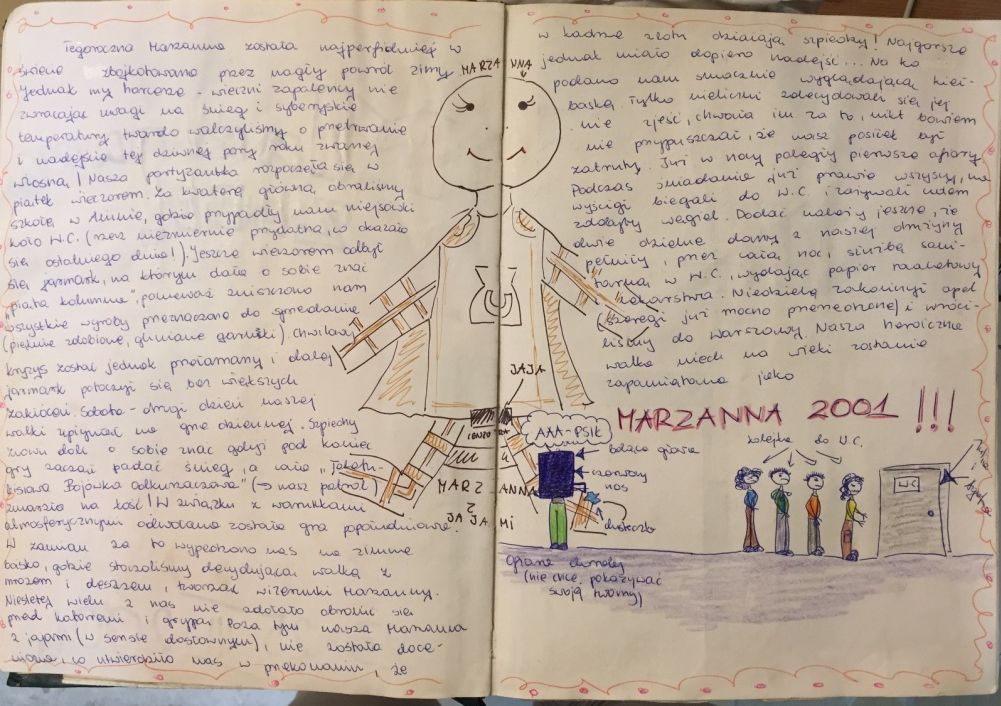 Tegoroczna Marzanna została najperfidniej w
świecie zbojkotowana przez nagły powrót zimy.
Jednak my harcerze - wieczni zapaleńcy nie
zwracając uwagi na śnieg i syberyjskie
temperatury twardo walczyliśmy o przetrwanie
i nadejście tej dziwnej pory roku zwanej
wiosną! Nasza partyzantka rozpoczęła się w
piątek wieczorem. Za kwaterę główną obraliśmy
szkołę w, gdzie przypadły nam miejscówki
koło W.C. (rzecz niezmiernie przydatna, co okazało
się ostatniego dnia!). Jeszcze wieczorem odbył
się jarmark, na którym dała o sobie znać
"piąta kolumna", ponieważ zniszczono nam
wszystkie wyroby przeznaczone do sprzedania
(pięknie zdobione, gliniane garnuszki). Chwilowy
kryzys został jednak przełamany i dalej
jarmark potoczył się bez większych
zakłóceń. Sobota - drugi dzień naszej
walki upłynął na grze dziennej. Szpiedzy
znowu dali o sobie znać gdyż pod koniec
gry zaczął padać śnieg, a cała
Bojówka Odkurzaczowa" (→ nasz patrol)
zmarzła na kość! W związku z warunkami
atmosferycznymi odwołana została gra popołudniowa.
W zamian za to wypędzono nas na zimne
boisko, gdzie stoczyliśmy decydującą walkę z
mrozem i deszczem, tworząc wizerunki Marzanny.
Niestety wielu z nas nie zdołało obronić się
przed katarem i grypą. Poza tym nasza Marzanna
z jajami (w sensie dosłownym), nie została doce-
niona, co utwierdziło nas w przekonaniu, że
MARZANNA
JAJA
CENZURA
MARZANNA
Z
JAJAMI
w kadrze złotu działają szpiedzy! Najgorsze
jednak miało dopiero nadejść... Na
podano nam smacznie wyglądającą kieł-
baskę. Tylko nieliczni zdecydowali się jej
nie zjeść, chwała im za to, nikt bowiem
nie przypuszczał, że nasz posiłek był
zatruty. Już w nocy poległy pierwsze ofiary.
Podczas śniadania już prawie wszyscy, na
wyścigi biegali do W.C. i zażywali cudem
zdobyty węgiel. Dodać należy jeszcze, że
dwie dzielne damy z naszej drużyny
pełniły, przez całą noc, służbę sani-
tarną w W.C., wydając papier toaletowy
i lekarstwa. Niedzielę zakończył apel
(szeregi już mocno przerzedzone) i wróci-
liśmy do Warszawy. Nasza heroiczna
walka niech na wieki zostanie
zapamiętana jako
MARZANNA 2001 !!!
AAA-PSIK
bolące gardło
czerwony
nos
chusteczka
kolejka do W.C.
WC
(nie chce pokazywać
swojej twarzy)